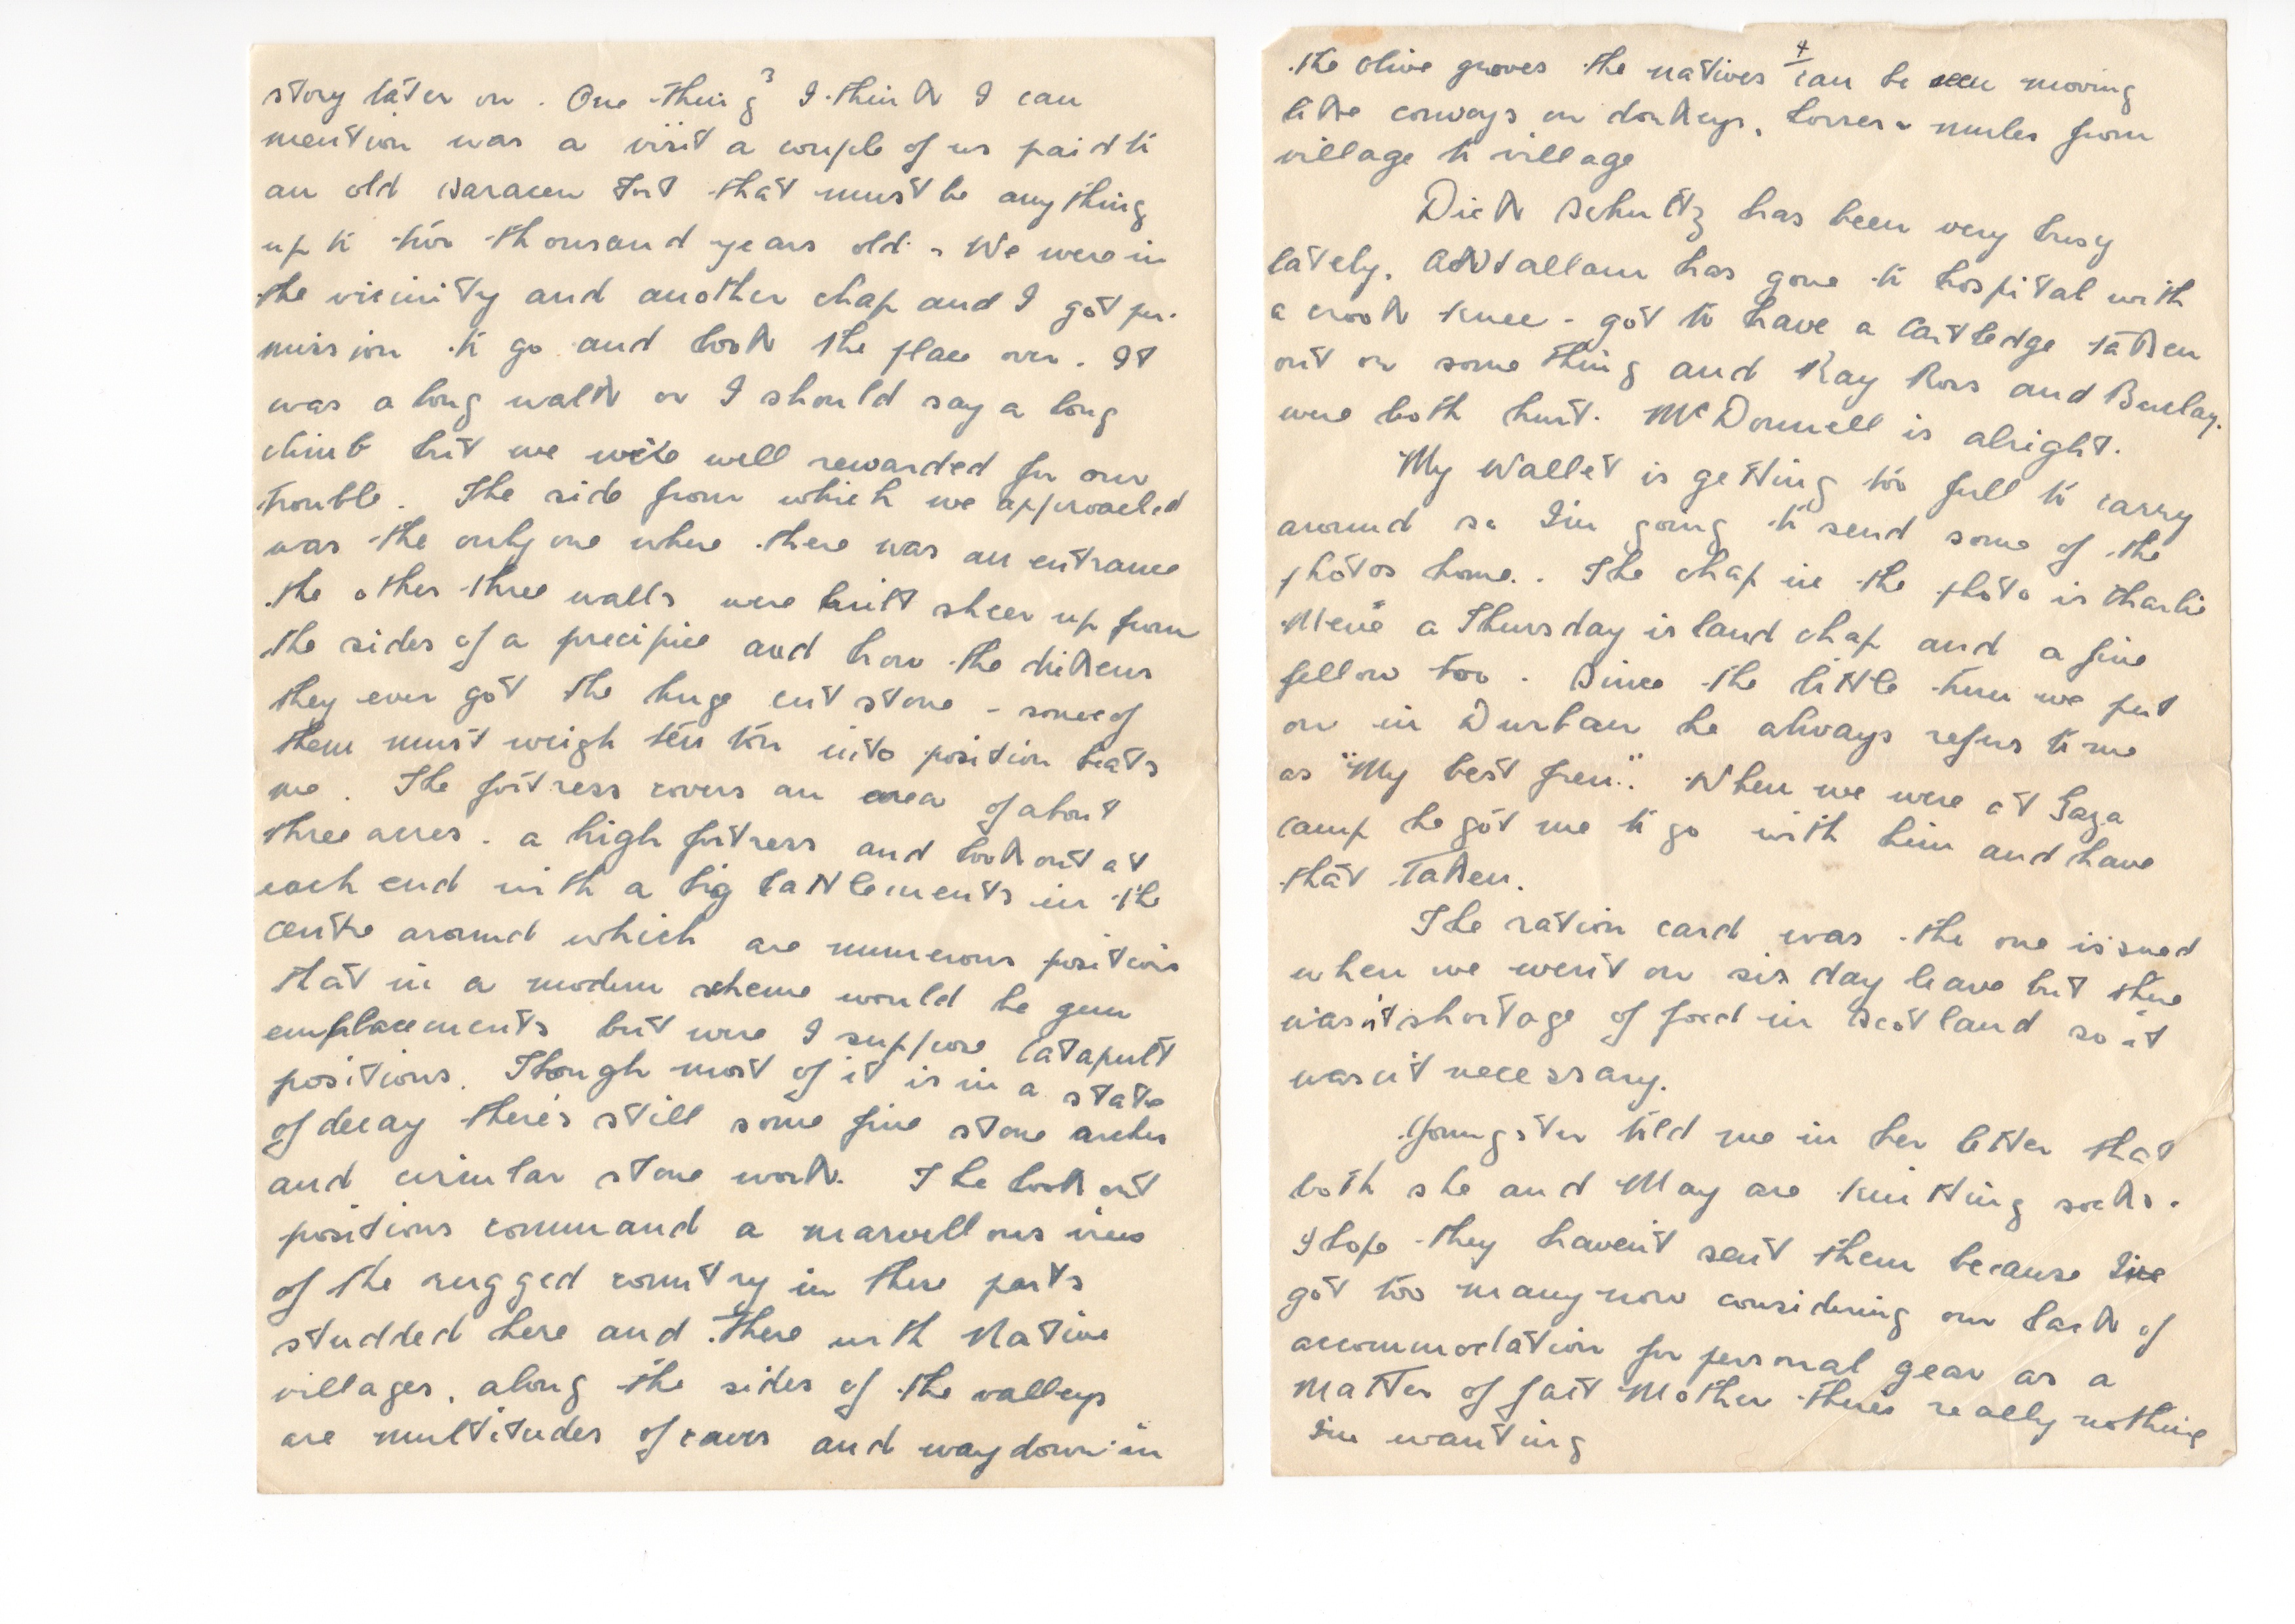 3
story later on. One thing I think I can
mention was a visit a couple of us paid to
an old Saracen Fort that must be anything
up to two thousand years old. We were in
the vicinity and another chap and I got per-
mission to go and look the place over. It
was a long walk or I should say a long
climb but we were well rewarded for our
trouble. The side from which we approached
was the only one where there was an entrance
the other three walls were built sheer up from
the sides of a precipice and how the dickens
they ever got the huge cut stone - some of
them must weigh ten ton into position beats
me. The fortress covers an area of about
three acres. a high fortress and look out at
each end with a big battlements in the
centre around which are numerous positions
that in a modern scheme would be gun
emplacements but were I suppose catapult
positions. Though most of it is in a state
of decay there's still some fine stone arches
and circular stone work. The look out
positions command a marvellous view
of the rugged country in these parts
studded here and there with Native
villages, along the sides of the valleys
are multitudes of caves and way down in
4
the olive groves the natives can be seen moving
like convoys on donkeys, horses & mules from
village to village
Dick Schultz has been very busy
lately. has gone to hospital with
a crook knee - got to have a cartledge taken
out or some thing and Ray Ross and Barclay.
were both hurt. McDonnell is alright.
My Wallet is getting too full to carry
around so I'm going to send some of the
photos home. The chap in the photo is Charlie
Mene a Thursday island chap and a fine
fellow too. Since the little turn we put
on in Durban he always refers to me
as "My best fren". When we were at Gaza
camp he got me to go with him and have
that taken.
The ration card was the one issued
when we went on six day leave but there
wasn't shortage of food in Scotland so it
wasn't necessary.
Youngster told me in her letter that
both she and May are knitting socks.
I hope they haven't sent them because I've
got too many now considering our lack of
accommodation for personal gear as a
matter of fact Mother there's really nothing
I'm wanting